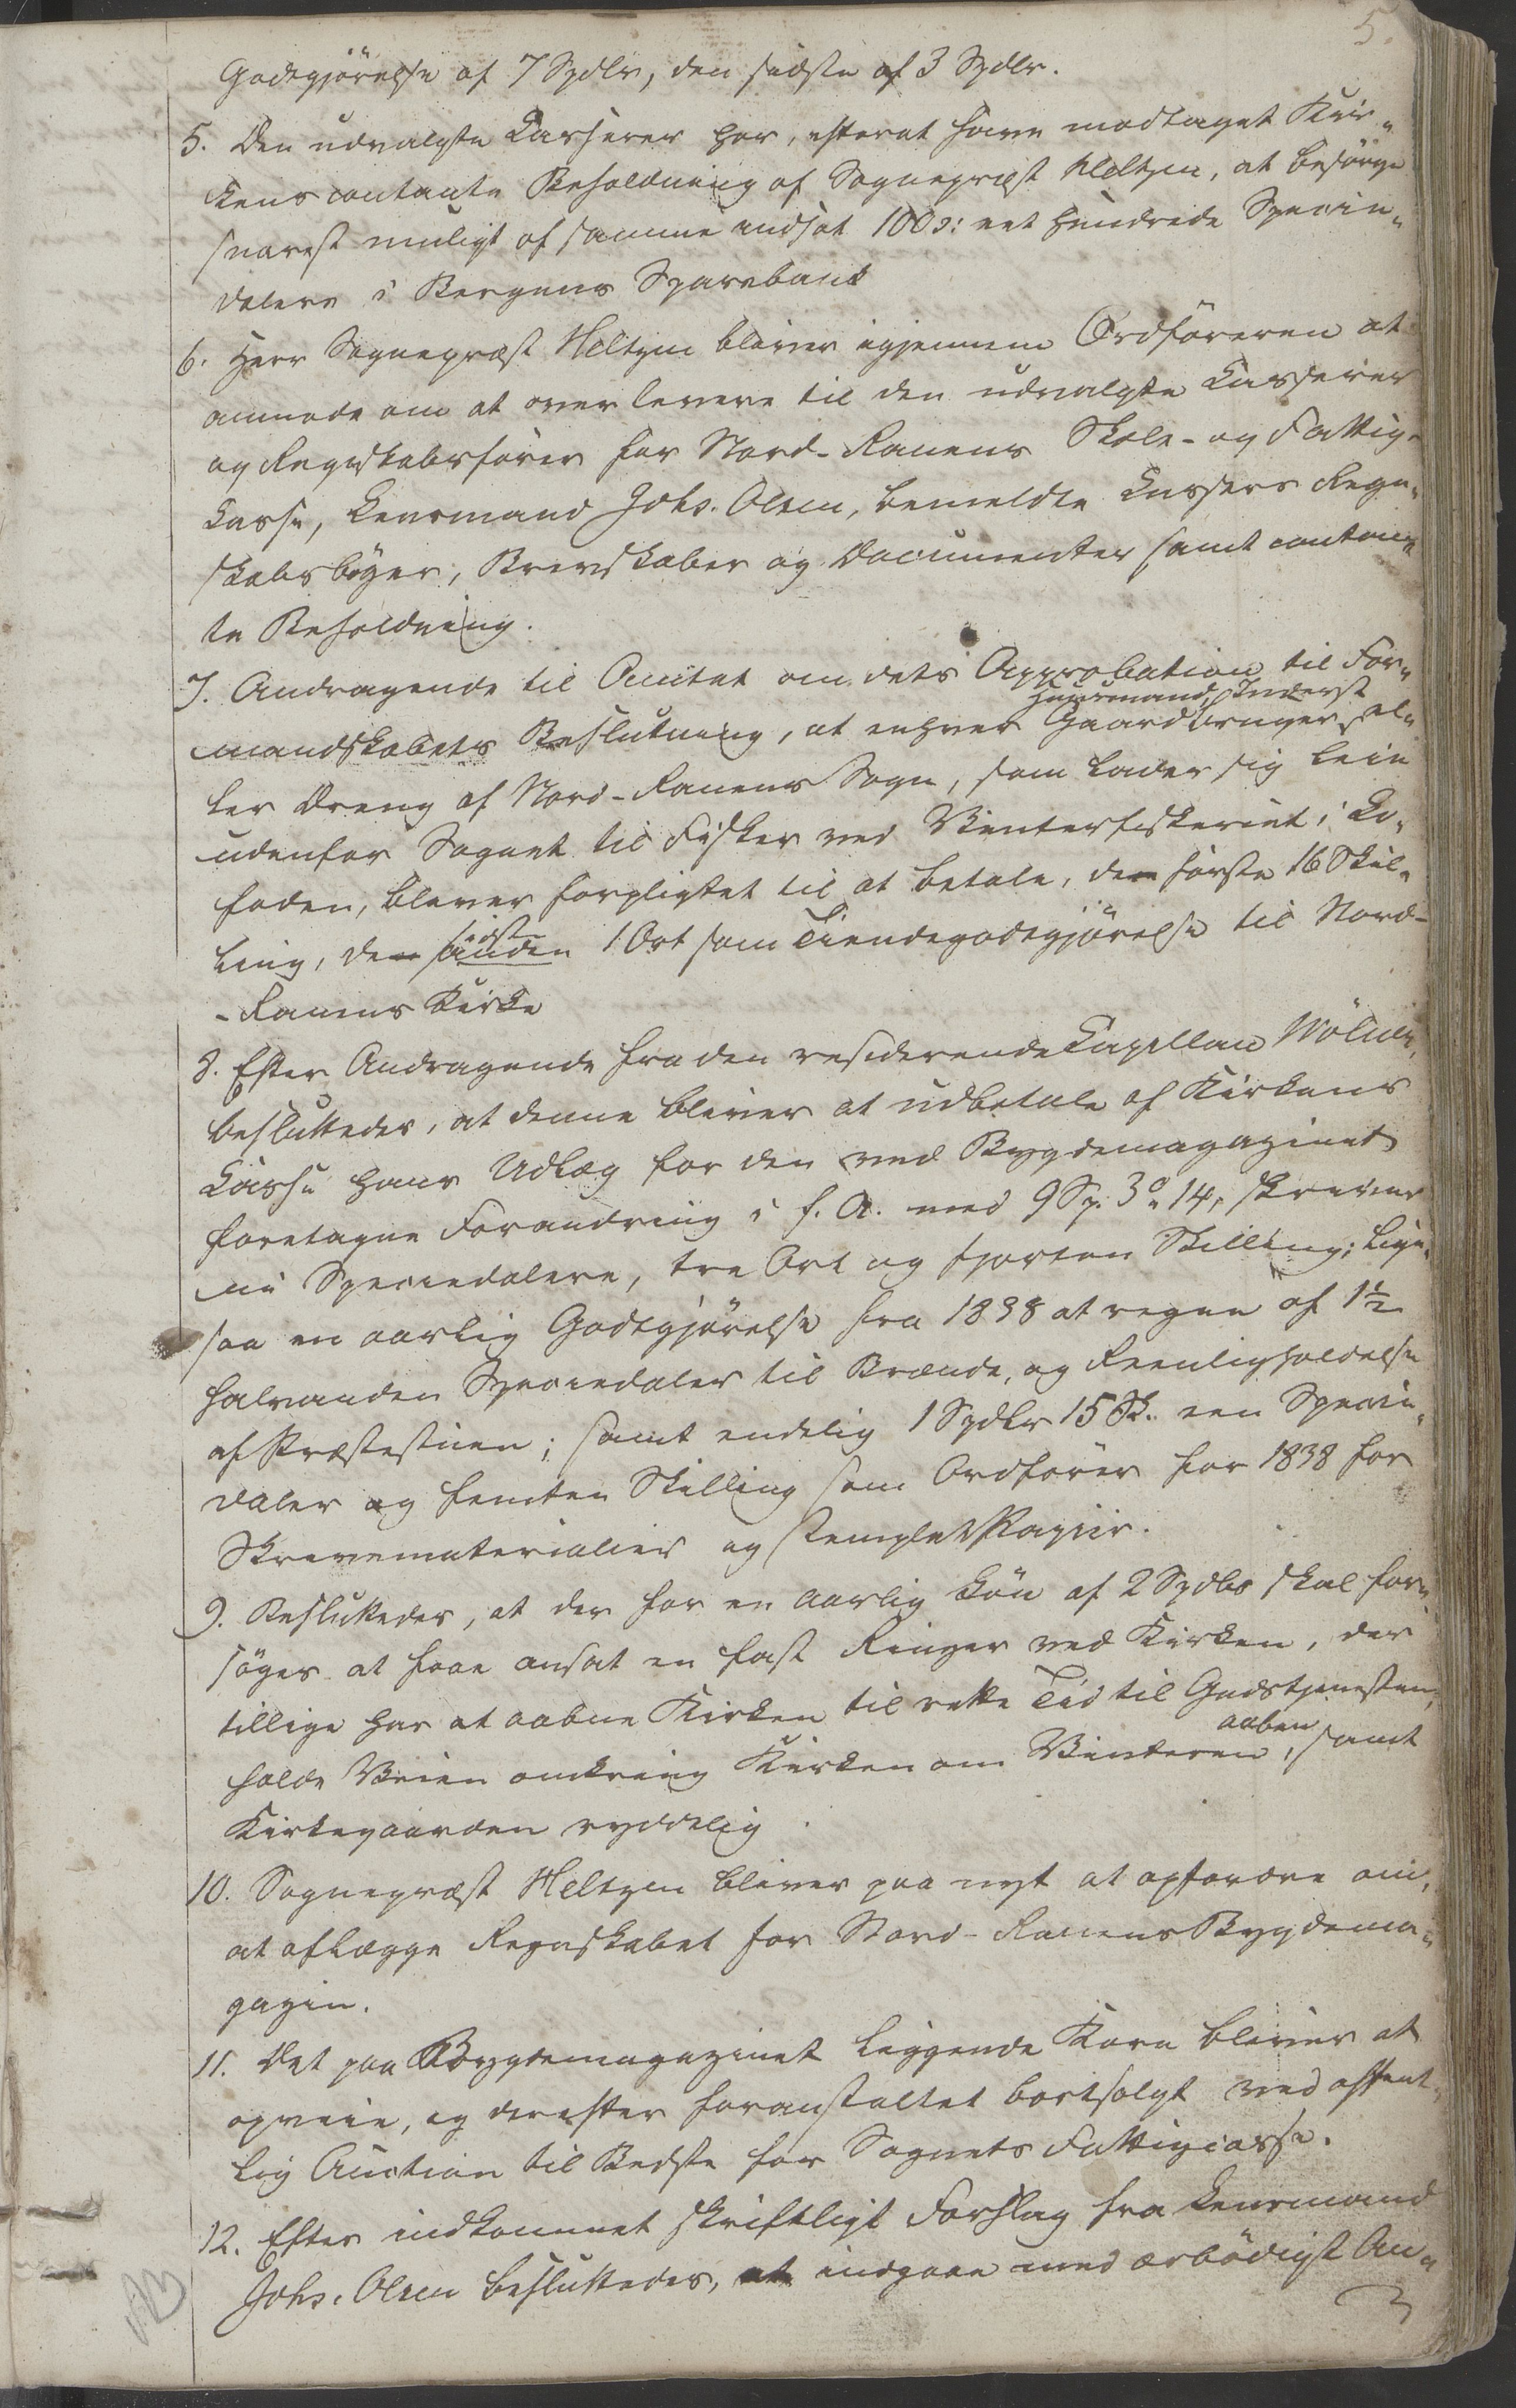 5.
Godtgjörelse af 7 Spdlr, den sidste af 3 Spdlr.
5. Den udvalgte Casserer har, efterat have modtaget Kir-
kens contante Beholdning af Sognepræst Heltzen, at besörge
snarest muligt af samme indsat 100 s: eet hundrede Specie-
dalere i Bergens Sparebank
6. Herr Sognepræst Heltzen bliver igjennem Ordföreren at
anmode om at overlevere til den udvalgte Casserer
og Regnskabsförer for Nord-Ranens Skole- og Fattig-
Casse, Lensmand Johs. Olsen, bemeldte Cassers Regn-
skabsbøger, Brevskaber og Documenter samt contan-
te Beholdning.
7. Andragende til Amtet om dets Approbation til For-
Huusmand, Inderst
mandskabets Beslutning, at enhver Gaardbruger, el-
ler Dreng af Nord-Ranens Sogn, som lader sig leie
udenfor Sognet til Fisker ved Vinterfiskeriet i Lo-
foden, bliver forpligtet til at betale, den förste 16 Skil-
sidste
ling, den anden 1 Ort som Tiendegodtgjörelse til Nord-
-Ranens Kirke
8. Efter Andragende fra den residerende Capellan
besluttedes, at denne bliver at udbetale af Kirkens
Casse hans Udlæg for den ved Bygdemagazinet
foretagne Forandring i f. A. med 9 Sp. 3 o 14 s, skriver
ni Speciedalere, tre Ort og fjorten Skilling; lige-
saa en aarlig Godtgjörelse fra 1838 at regne af 1½
halvanden Speciedaler til Brænde, og Reenligholdelse
af Præstestuen; samt endelig 1 Spdlr 15 Sk. een Specie-
daler og femten Skilling som Ordförer for 1838 for
Skrivematerialier og stemplet Papiir.
9. Besluttedes, at der for en aarlig Lön af 2 Spdlr skal for-
söges at faae ansat en fast Ringer ved Kirken, der
tillige har at aabne Kirken til rette Tid til Gudstjenesten,
aaben
holde Veien omkring Kirken om Vinteren, samt
Kirkegaarden ryddelig.
10. Sognepræst Heltzen bliver paa nyt at opfordre om,
at aflægge Regnskabet for Nord-Ranens Bygdema-
gazin.
11. Det paa Bygdemagazinet liggende Korn bliver at
opveie, og derefter foranstaltet bortsolgt ved offent-
lig Auction til Bedste for Sognets Fattigcasse.
12. Efter indkommet skriftligt Forslag fra Lensmand
Johs. Olsen besluttedes, at indgaae med ærbödigst An-